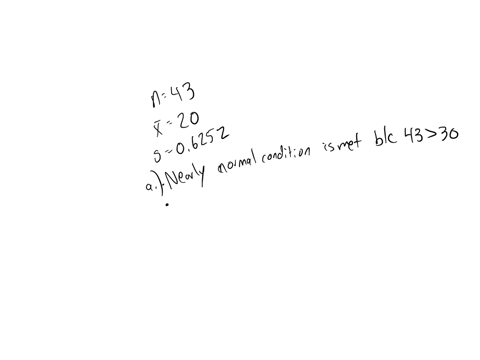 n=43
x̄=20
s=0.6252
a.) Nearly normal condition is met b/c 43>30